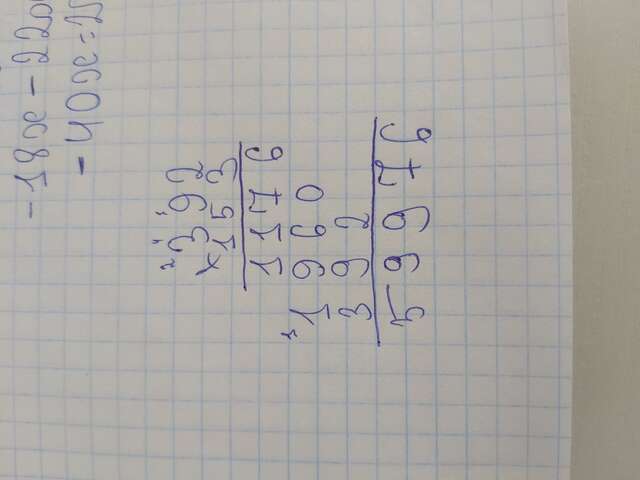 -18x - 220
-40x = 2
392
×153
1176
1960
392
59976